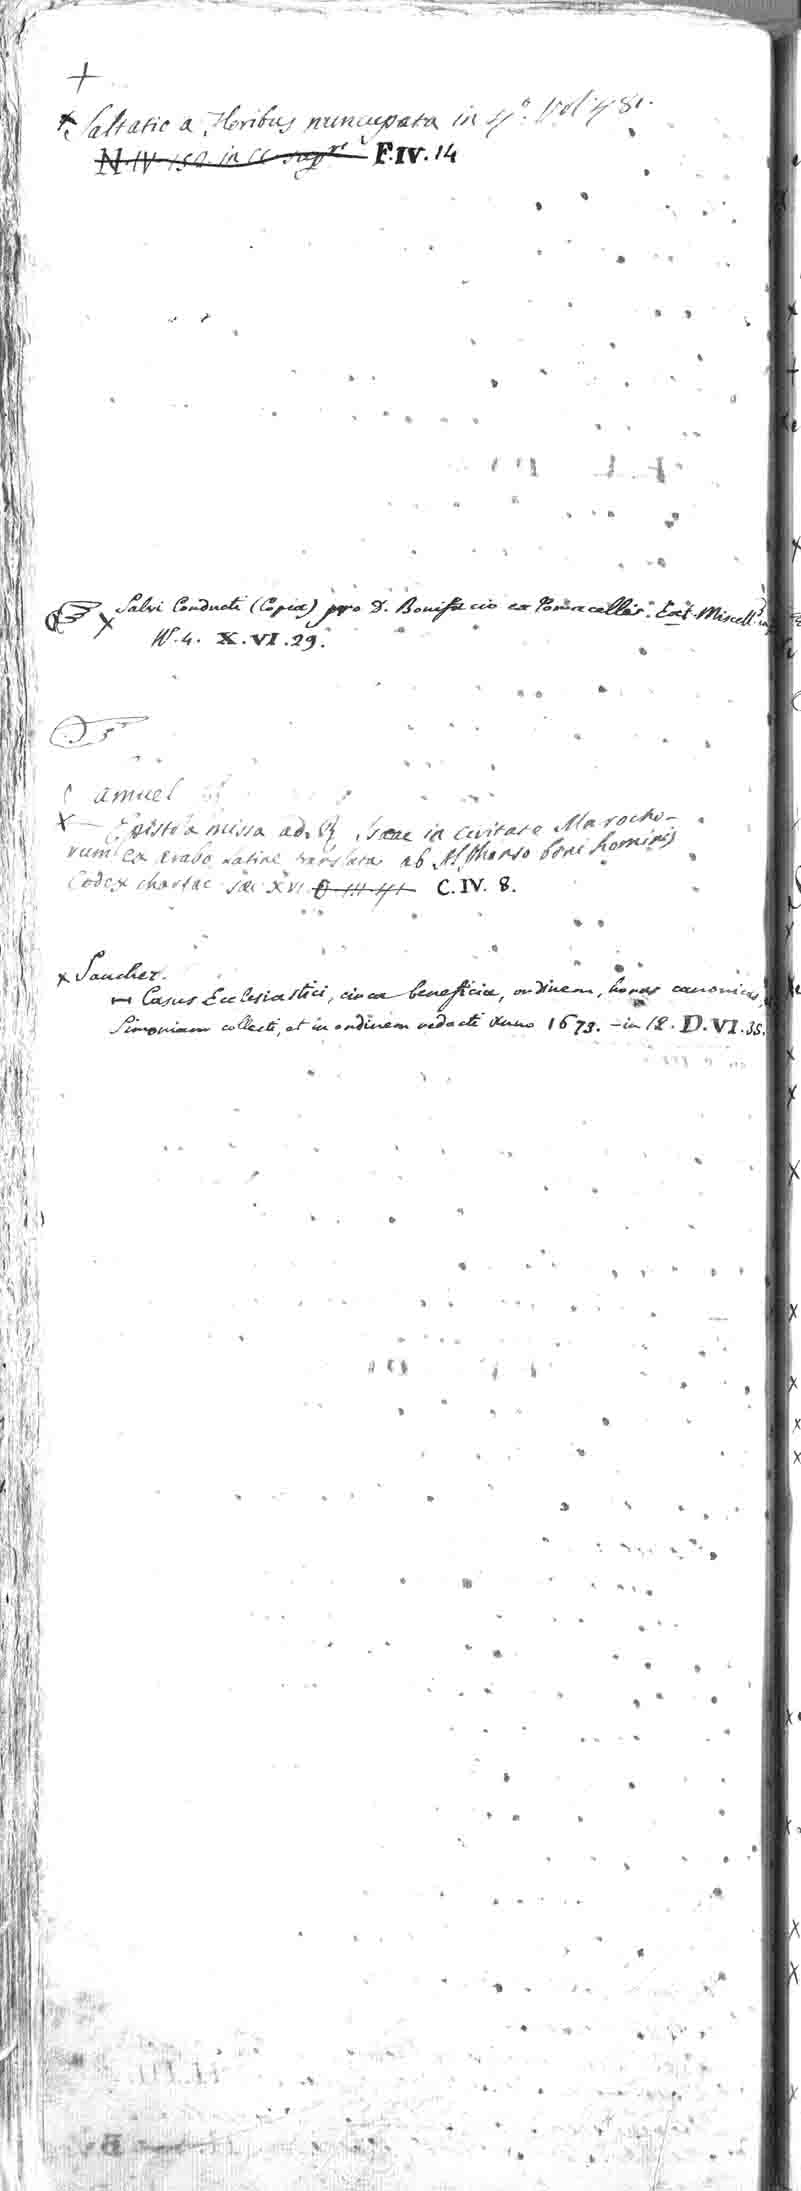 +
x Saltatio a Floribus nuncupata in 4º. Vol. 481.
N. IV. 152 in F.IV.14
x Salvi Conducti (Copia) pro D. Bonifacio ex Tomacellis. Ext. Miscell.
Nº. 4. X.VI.29.
Samuel
x — Epistola missa ad R. Isaac in civitate Marocho-
rum ex arabo Latine translata ab Alphonso boni hominis
Codex chartac. sæc XVI. C.IV.8.
x Sanchez.
— Casus Ecclesiastici, circa beneficia, ordinem, horas canonicas,
Simoniam collecti, et in ordinem redacti Anno 1673. – in 12. D.VI.35.